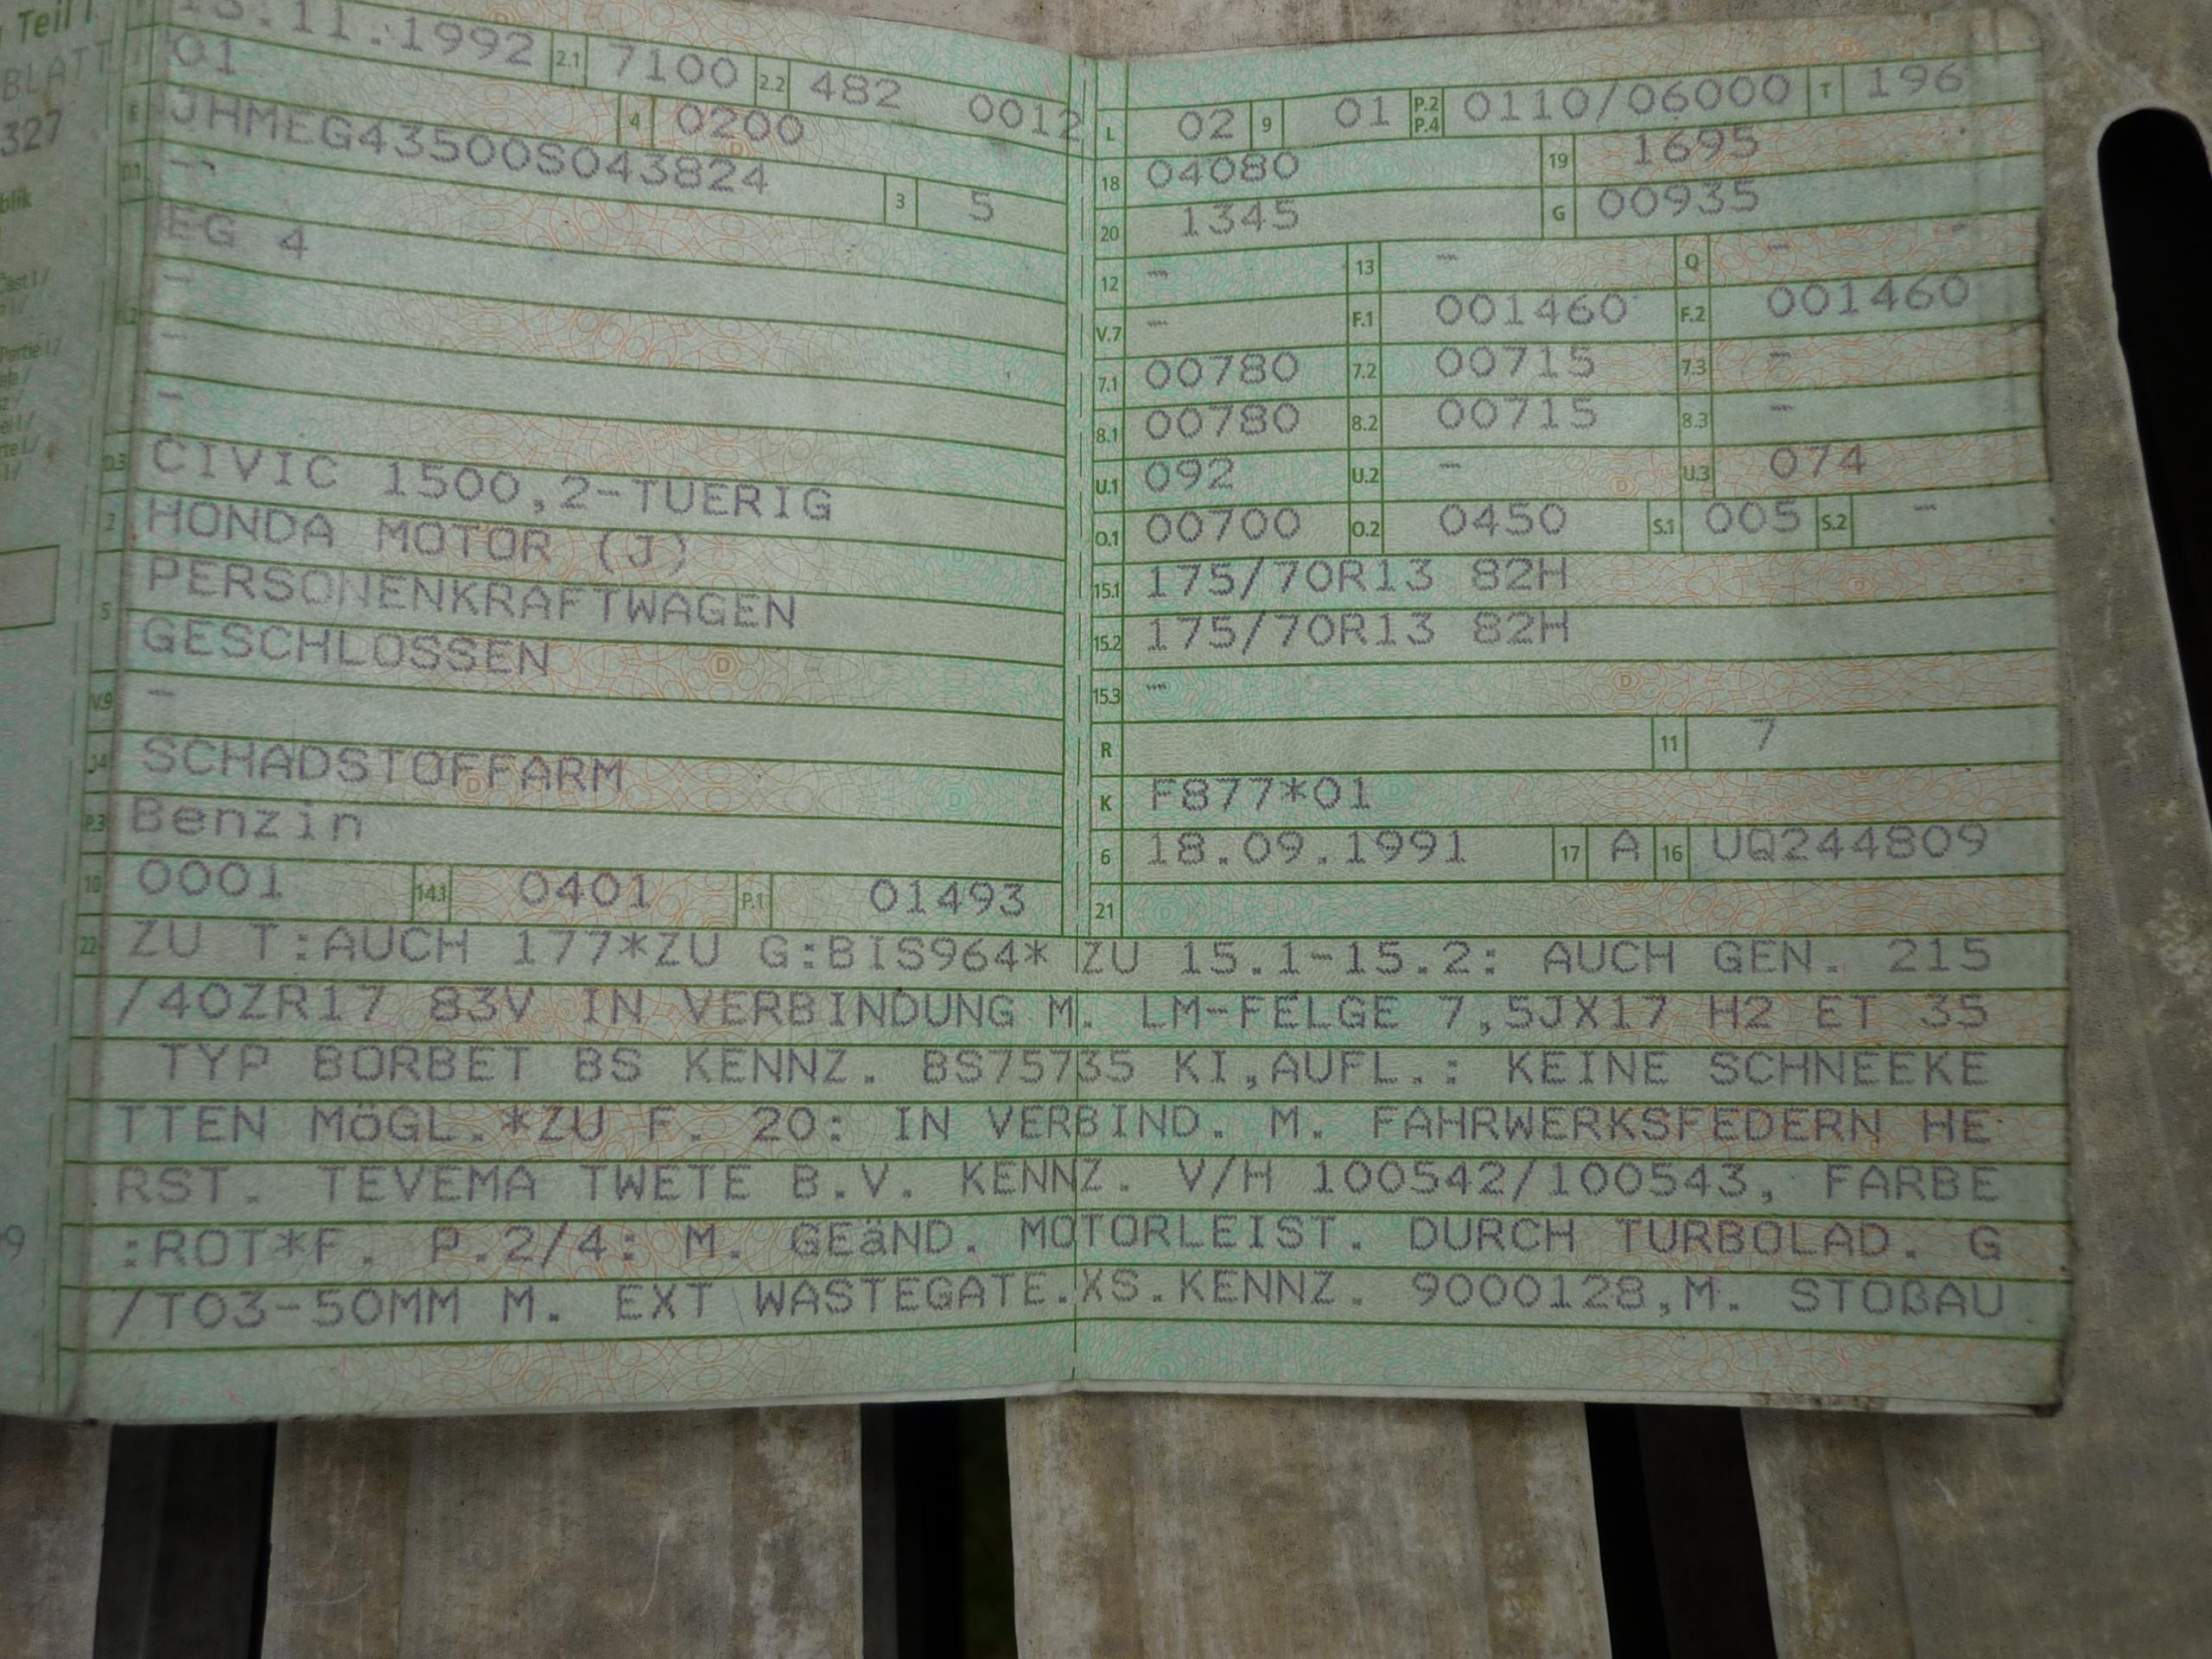 Teil I
BLATT
327
blik
13.11.1992 2.1 7100 2.2 482 0012
J 01 4 0200
E JHMEG43500S043824 3 5
D.1 -
EG 4
-
-
-
D.3 CIVIC 1500,2-TUERIG
2 HONDA MOTOR (J)
5 PERSONENKRAFTWAGEN
GESCHLOSSEN
V.9 -
14 SCHADSTOFFARM
P.3 Benzin
10 0001 14.1 0401 P.1 01493
L 02 9 01 P.2 P.4 0110/06000 T 196
18 04080 19 1695
20 1345 G 00935
12 - 13 - Q -
V.7 - F.1 001460 F.2 001460
7.1 00780 7.2 00715 7.3 -
8.1 00780 8.2 00715 8.3 -
U.1 092 U.2 - U.3 074
O.1 00700 O.2 0450 S.1 005 S.2 -
15.1 175/70R13 82H
15.2 175/70R13 82H
15.3 -
R 11 7
K F877*01
6 18.09.1991 17 A 16 UQ244809
21
22 ZU T:AUCH 177*ZU G:BIS964* ZU 15.1-15.2: AUCH GEN. 215
/40ZR17 83V IN VERBINDUNG M. LM-FELGE 7,5JX17 H2 ET 35
TYP BORBET BS KENNZ. BS75735 KI,AUFL.: KEINE SCHNEEKE
TTEN MöGL.*ZU F. 20: IN VERBIND. M. FAHRWERKSFEDERN HE
RST. TEVEMA TWETE B.V. KENNZ. V/H 100542/100543, FARBE
:ROT*F. P.2/4: M. GEäND. MOTORLEIST. DURCH TURBOLAD. G
/T03-50MM M. EXT WASTEGATE.XS.KENNZ. 9000128,M. STOßAU